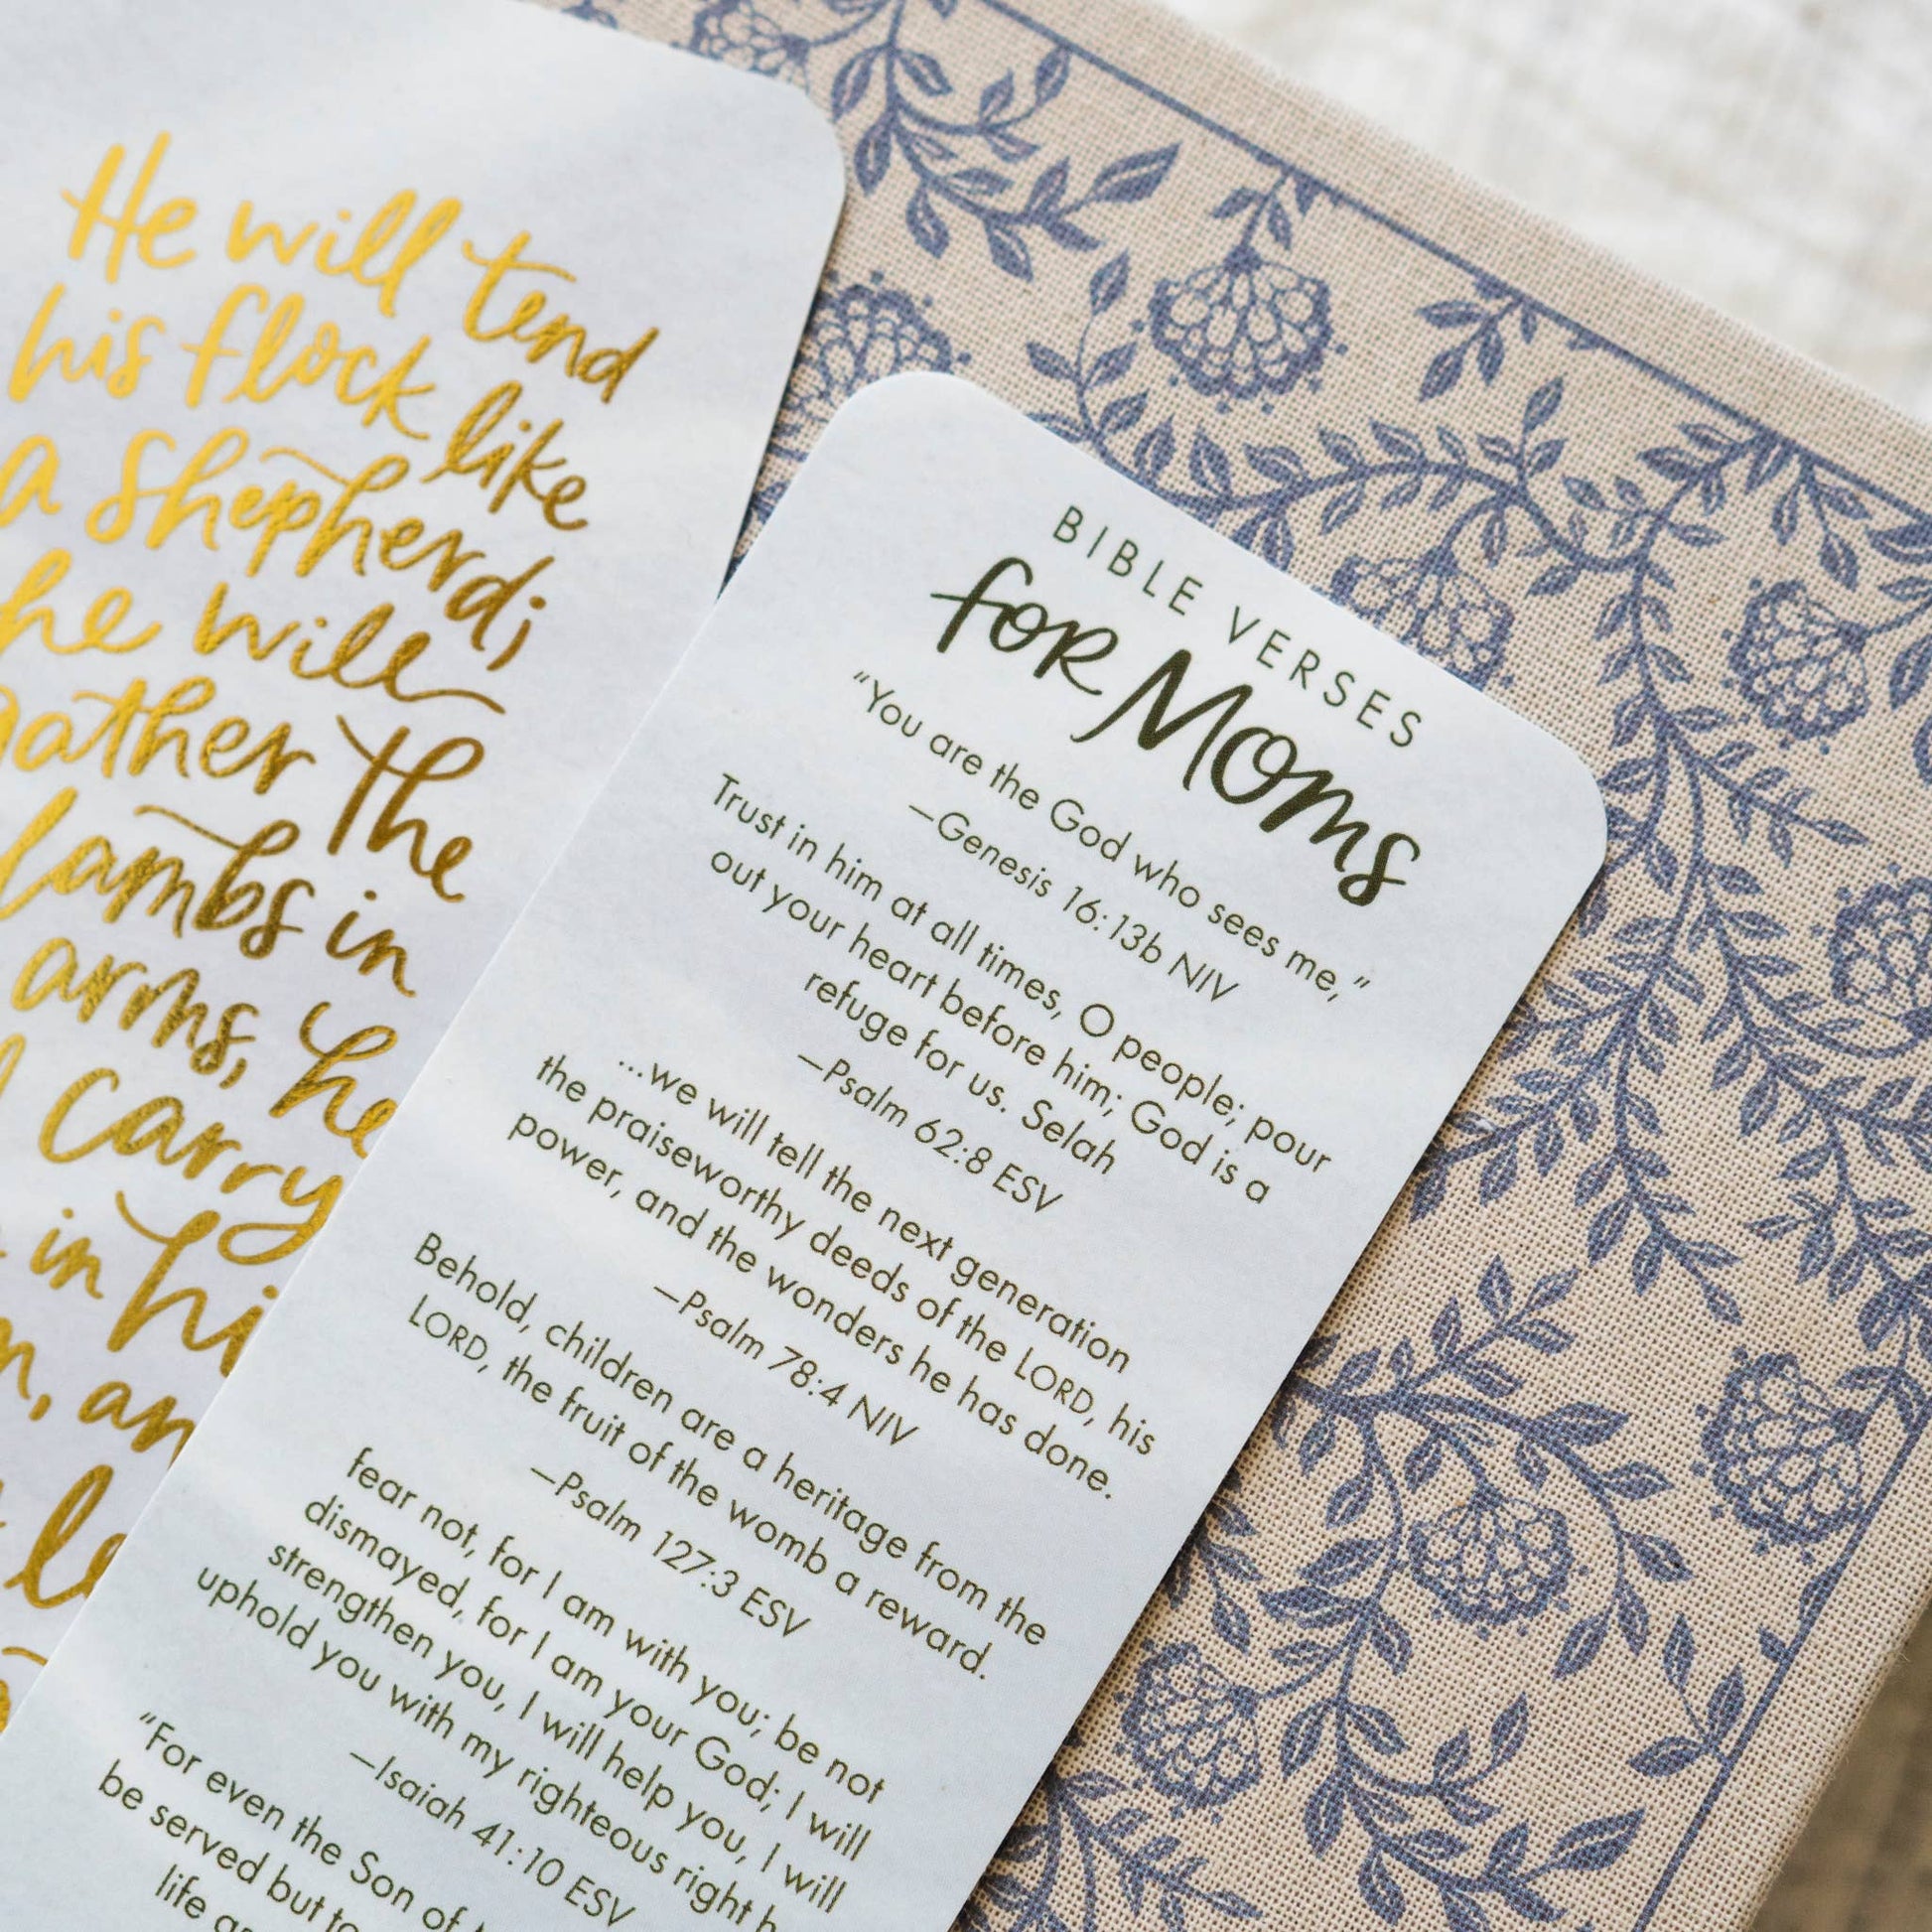 He will tend
his flock like
a shepherd;
he will
gather the
lambs in
arms, he
carry
in
an
BIBLE VERSES
for Moms
“You are the God who sees me,”
—Genesis 16:13b NIV
Trust in him at all times, O people; pour
out your heart before him; God is a
refuge for us. Selah
—Psalm 62:8 ESV
...we will tell the next generation
the praiseworthy deeds of the LORD, his
power, and the wonders he has done.
—Psalm 78:4 NIV
Behold, children are a heritage from the
LORD, the fruit of the womb a reward.
—Psalm 127:3 ESV
fear not, for I am with you; be not
dismayed, for I am your God; I will
strengthen you, I will help you, I will
uphold you with my righteous right h
—Isaiah 41:10 ESV
“For even the Son of
be served but to
life